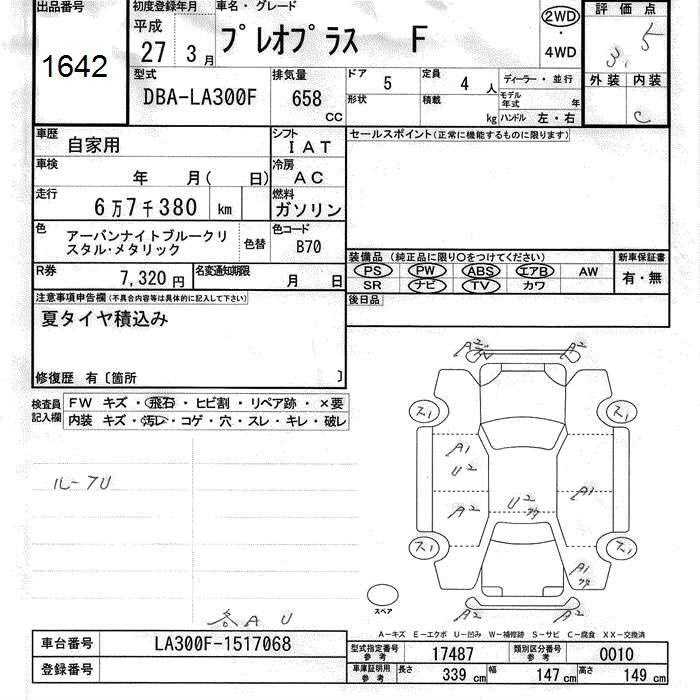 出品番号 初度登録年月 車名・グレード 2WD 評価点
1642 平成 27 3月 プレオプラス F ・ 4WD 3.5
型式 排気量 ドア 定員 ディーラー・並行 外装 内装
DBA-LA300F 658 CC 5 4人 モデル年式 年 C
形状 積載 kg ハンドル 左・右
車歴 自家用 シフト IAT セールスポイント(正常に機能するものに限ります)
車検 年 月( 日) 冷房 AC
走行 6万7千380 km 燃料 ガソリン
色 アーバンナイトブルークリスタル・メタリック 色替 色コード B70
装備品(純正品に限り○をつけてください) 新車保証書
PS PW ABS エアB AW 有・無
SR ナビ TV カワ
R券 7,320円 名変通知期限 月 日
後日品
注意事項申告欄(不具合内容等は具体的に記入して下さい)
夏タイヤ積込み
修復歴 有〔箇所 〕
検査員記入欄 FW キズ・飛石・ヒビ割・リペア跡・×要
内装 キズ・汚レ・コゲ・穴・スレ・キレ・破レ
A2 A2
ス1 ス1
A1
U2
A2 U2 A1
ルーフU
ス1 ス1
A1
スペア
A2 A2
各A U
A-キズ E-エクボ U-凹み W-補修跡 S-サビ C-腐食 XX-交換済
車台番号 LA300F-1517068
登録番号
型式指定番号 参考 17487 類別区分番号 参考 0010
車庫証明用 参考 長さ 339cm 幅 147cm 高さ 149cm